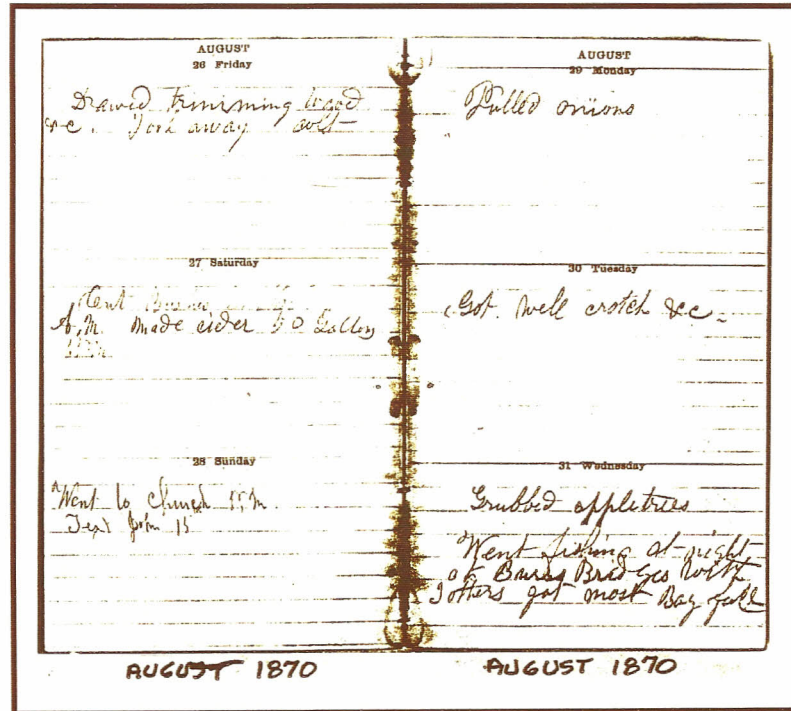 AUGUST
26 Friday
Drawed trimming wood
&c. York away colt
27 Saturday
Sent
A.M. made cider 50 Gallon
28 Sunday
Went to church
Text John 15
AUGUST 1870
AUGUST
29 Monday
Pulled onions
30 Tuesday
Got Well crotch &c.
31 Wednesday
Grubbed appletrees
Went fishing at night
Bridges with
others got most Bag full
AUGUST 1870